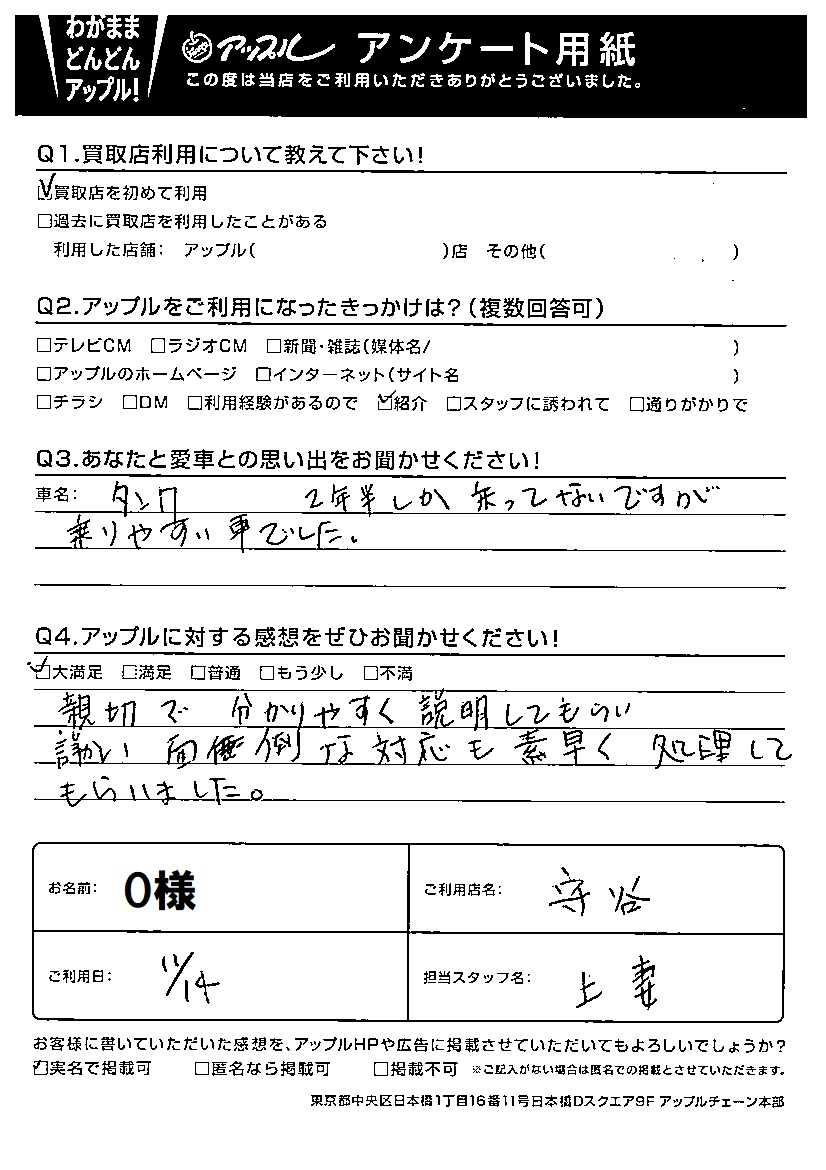 わがまま
どんどん
アップル!
アップル アンケート用紙
この度は当店をご利用いただきありがとうございました。
Q1.買取店利用について教えて下さい!
☑買取店を初めて利用
□過去に買取店を利用したことがある
利用した店舗: アップル( )店 その他( )
Q2.アップルをご利用になったきっかけは?(複数回答可)
□テレビCM □ラジオCM □新聞・雑誌(媒体名/ )
□アップルのホームページ □インターネット(サイト名 )
□チラシ □DM □利用経験があるので ☑紹介 □スタッフに誘われて □通りがかりで
Q3.あなたと愛車との思い出をお聞かせください!
車名: タンク 2年半しか乗ってないですが
乗りやすい車でした。
Q4.アップルに対する感想をぜひお聞かせください!
☑大満足 □満足 □普通 □もう少し □不満
親切で 分かりやすく説明してもらい
面倒な対応も素早く 処理して
もらいました。
お名前: O様
ご利用店名: 守谷
ご利用日: 11/14
担当スタッフ名: 上妻
お客様に書いていただいた感想を、アップルHPや広告に掲載させていただいてもよろしいでしょうか?
☑実名で掲載可 □匿名なら掲載可 □掲載不可 ※ご記入がない場合は匿名での掲載とさせていただきます。
東京都中央区日本橋1丁目16番11号日本橋Dスクエア9F アップルチェーン本部